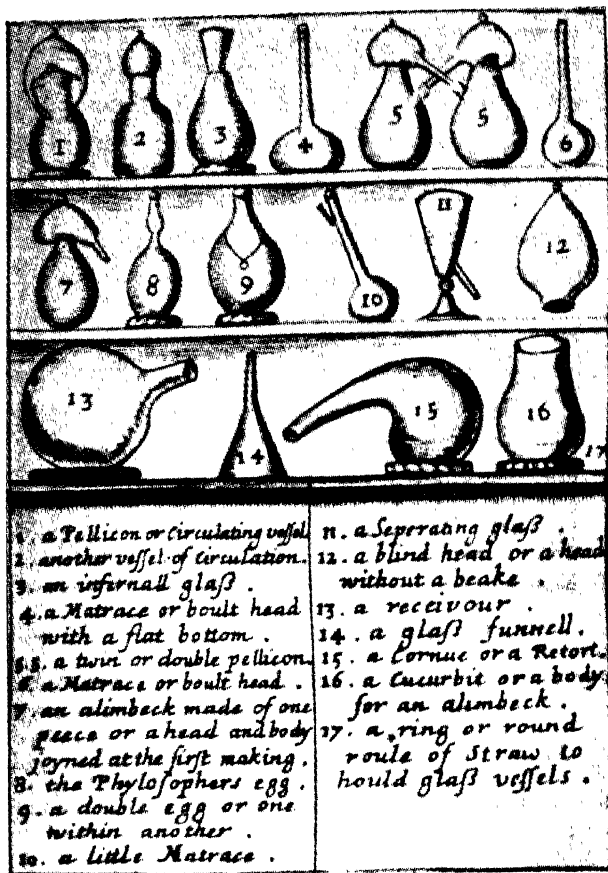 1
2
3
4
5
5
6
7
8
9
10
11
12
13
14
15
16
17
1. a Pellicon or Circulating vessel
2. another vessel of Circulation.
3. an infernall glaß.
4. a Matrace or boult head
with a flat bottom.
5.5. a twin or double pellicon.
6. a Matrace or boult head.
7. an alimbeck made of one
peece or a head and body
joyned at the first making.
8. the Phylosophers egg.
9. a double egg or one
within another.
10. a little Matrace.
11. a Seperating glaß.
12. a blind head or a head
without a beake.
13. a receivour.
14. a glaß funnell.
15. a Cornue or a Retort.
16. a Cucurbit or a body
for an alimbeck.
17. a ring or round
roule of Straw to
hould glaß vessels.